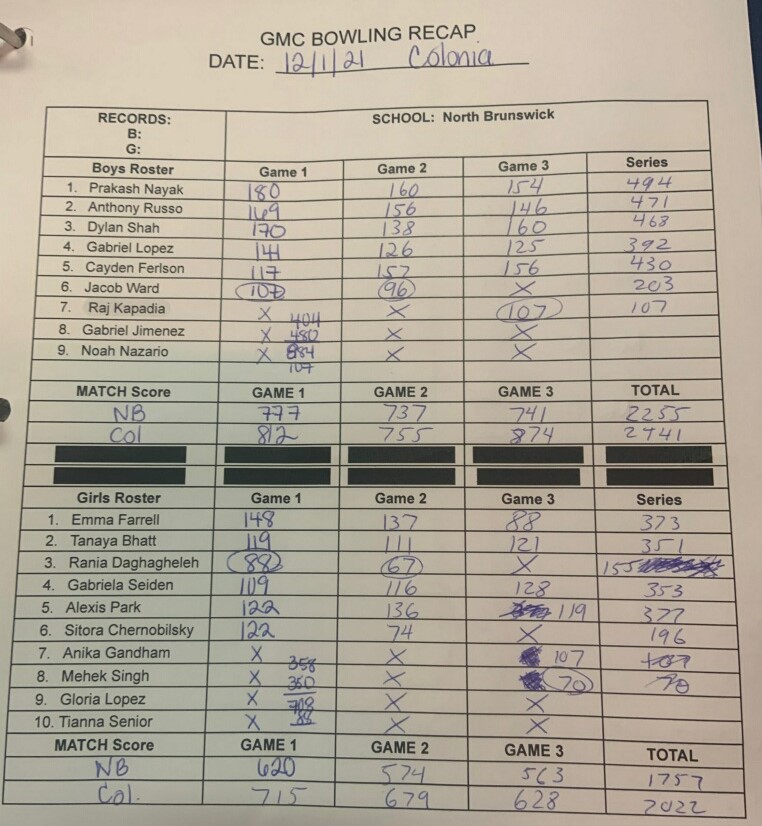 GMC BOWLING RECAP
DATE: 12/1/21 Colonia
RECORDS: SCHOOL: North Brunswick
B:
G:
Boys Roster Game 1 Game 2 Game 3 Series
1. Prakash Nayak 180 160 154 494
2. Anthony Russo 169 156 146 471
3. Dylan Shah 170 138 160 468
4. Gabriel Lopez 141 126 125 392
5. Cayden Ferlson 117 157 156 430
6. Jacob Ward 107 96 X 203
7. Raj Kapadia X X 107 107
404
8. Gabriel Jimenez X 480 X X
9. Noah Nazario X 884 X X
107
MATCH Score GAME 1 GAME 2 GAME 3 TOTAL
NB 777 737 741 2255
Col 812 755 874 2441
Girls Roster Game 1 Game 2 Game 3 Series
1. Emma Farrell 148 137 88 373
2. Tanaya Bhatt 119 111 121 351
3. Rania Daghagheleh 88 67 X 155
4. Gabriela Seiden 109 116 128 353
5. Alexis Park 122 136 119 377
6. Sitora Chernobilsky 122 74 X 196
7. Anika Gandham X X 107 107
358
8. Mehek Singh X 350 X 70 70
9. Gloria Lopez X 708 X X
10. Tianna Senior X 88 X X
MATCH Score GAME 1 GAME 2 GAME 3 TOTAL
NB 620 574 563 1757
Col. 715 679 628 2022